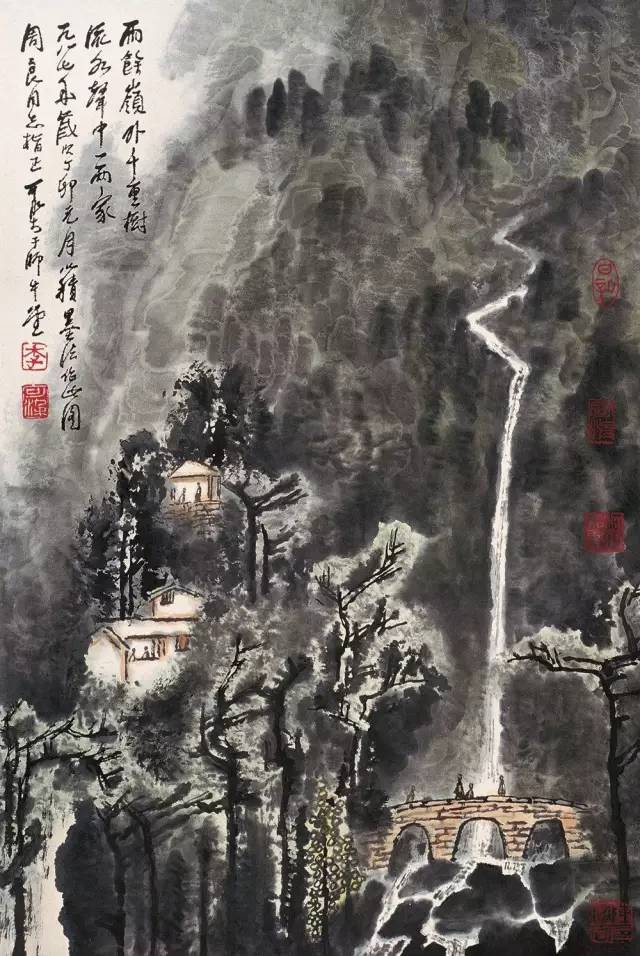 雨餘嶺外千重樹
流水聲中一兩家
一九八七年歲次丁卯元月以積墨法作此圖
周良同志指正 可染于師牛堂
李
可染